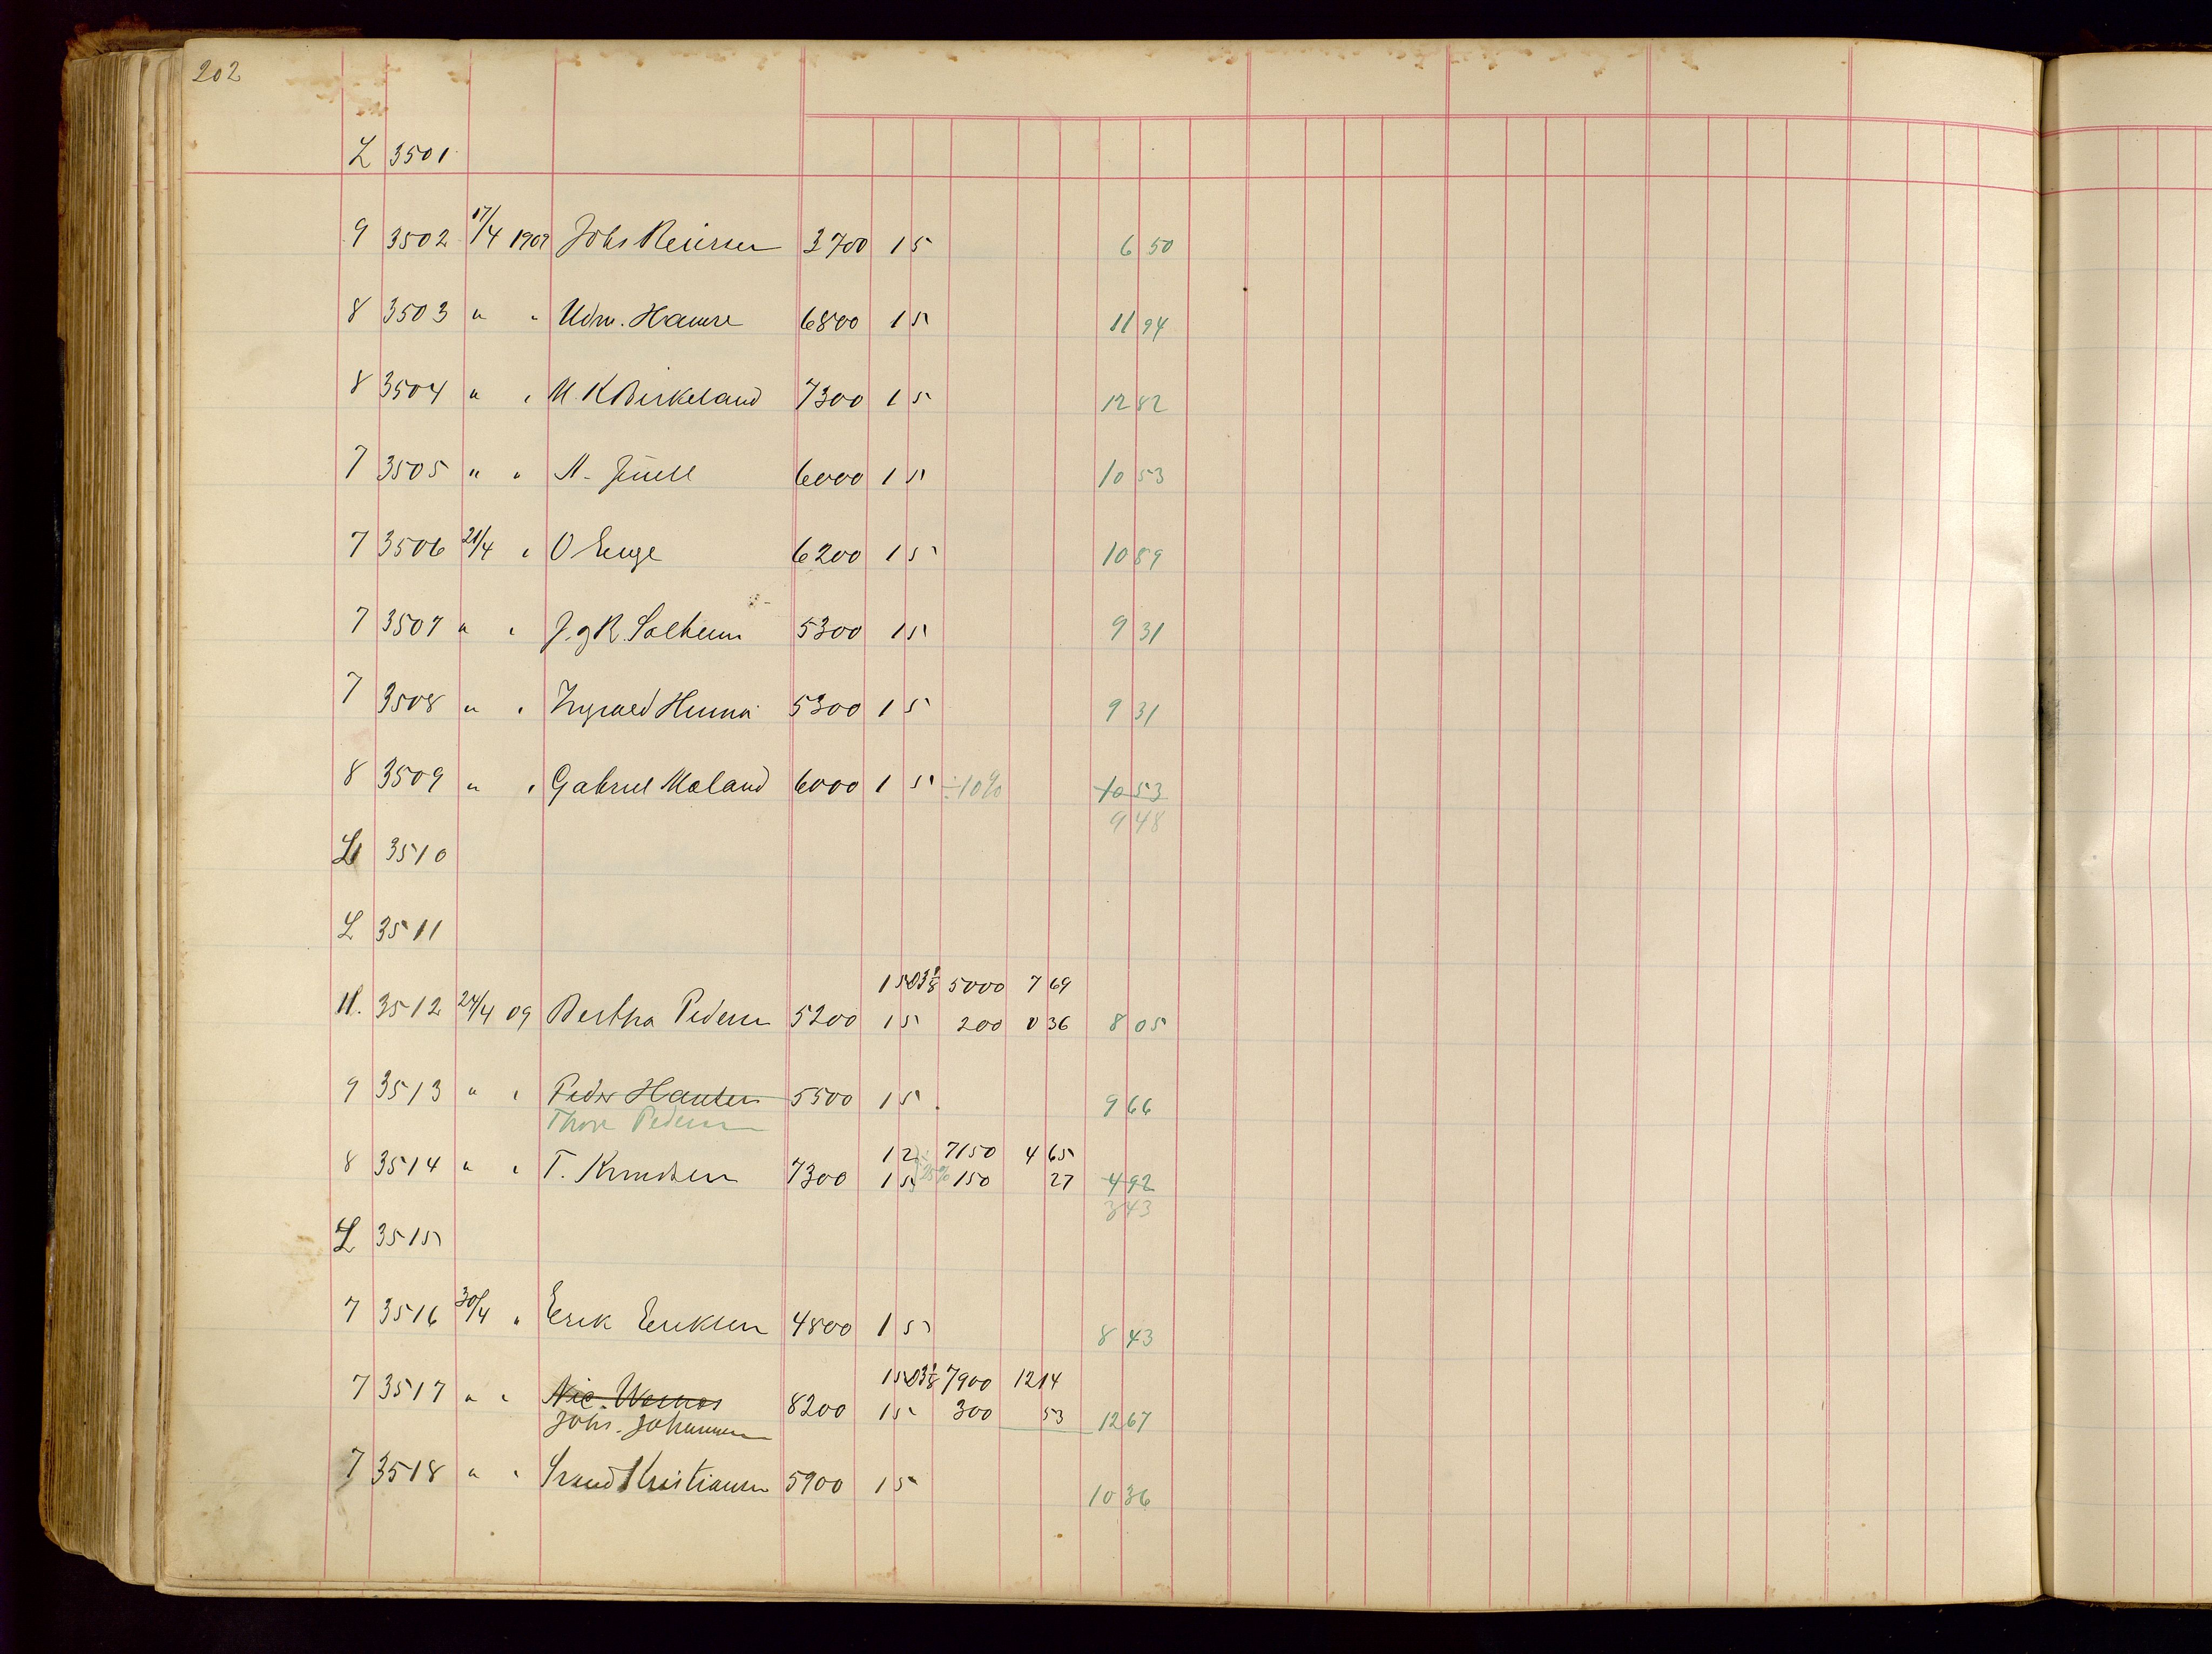 202
L 3501
9 3502 17/4 1909 Johs Reiersen 3700 15 6 50
8 3503 " " Udm. Hamre 6800 15 11 94
8 3504 " " M. K Birkeland 7300 15 12 82
7 3505 " " A. Juell 6000 15 10 53
7 3506 21/4 " O Enge 6200 15 10 89
7 3507 " " J. g R. Solheim 5300 15 9 31
7 3508 " " Ingvald 5300 15 9 31
8 3509 " " Gabriel Moland 6000 15 ÷10% 10 53
9 48
L 3510
L 3511
15 03 1/8 5000 7 69
11. 3512 24/4 09 Bertha Pedersen 5200 15 200 0 36 8 05
9 3513 " " Peder Hansen 5500 15 9 66
Thore Pedersen
12 7150 4 65
8 3514 " " T. Knudsen 7300 15 25% 150 27 4 92
3 43
L 3515
7 3516 30/4 " Erik Eriksen 4800 15 8 43
15 03 1/8 7900 12 14
7 3517 " " Nic. 8200 15 300 53 12 67
Johs. Johannesen
7 3518 " " Kristiansen 5900 15 10 36